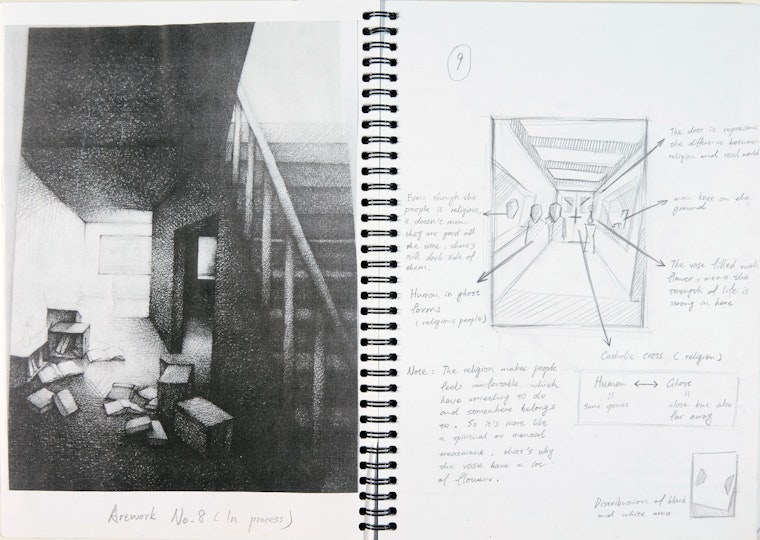 Artwork No.8 (In process)
9
The door is represent
the difference between
religion and real world
man knee on the
ground
The vase filled with
flower, means the
strength of life is
strong in here
Even though the
people is religious,
it doesn't mean
they are good all
the time, there's
still dark side of
them.
Human in ghost
forms
(religious people)
Catholic cross (religion)
Note: The religion makes people
feels comfortable, which
have something to do
and somewhere belongs
to. So it's more like
a spiritual or mental
, that's why
the vase have a lot
of flowers.
Human ⟷ Ghost
Same species
close but also
far away
Distribution of black
and white area